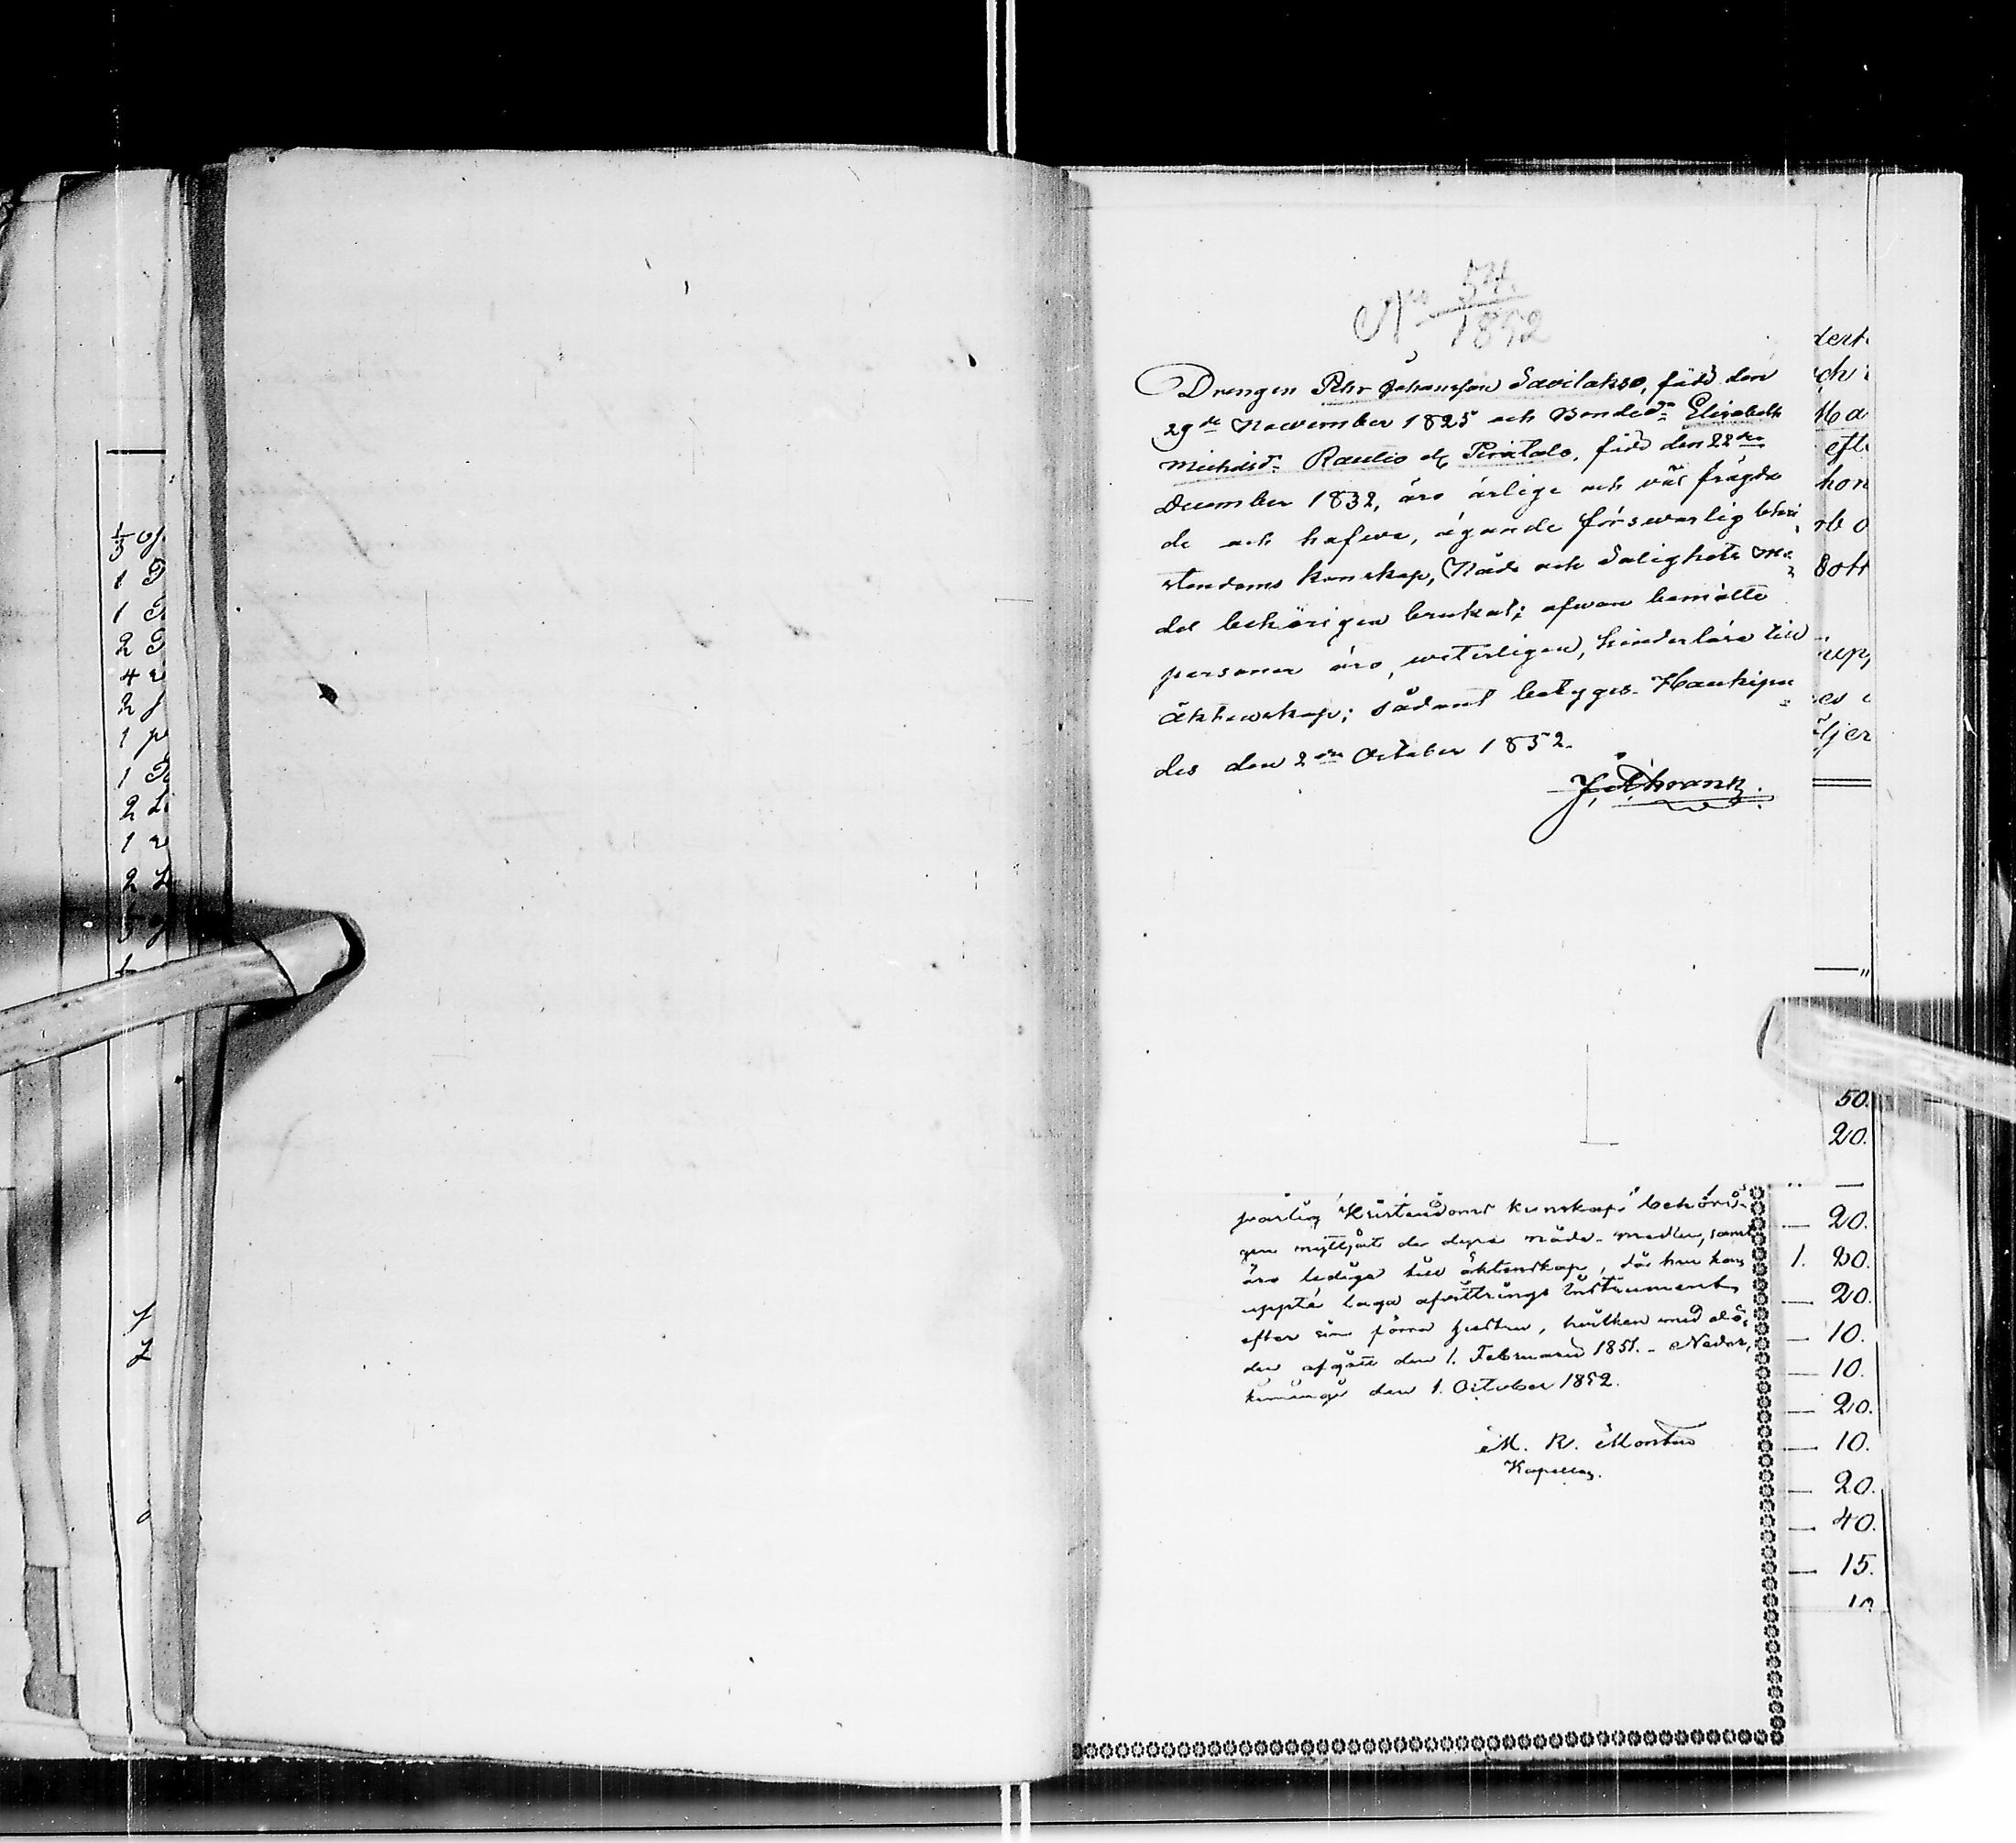 ½ g
1 T
1 T
2 T
4 r
2 f
1 p
1 T
2 L
1 r
2 L
No 54.
1852
Drengen Pehr Johansson Savilakso, född den
29de November 1825 och Bonded:r Elisabeth
Michelsd:r Rautio el Piratalo, född den 22dra
December 1832, äro ärlige och väl frägda
de och hafva, ägande försvarlig kri-
stendoms kunskap, Nåde och Salighets me-
del behörigen brukat; afwen bemälte
personer äro, weterligen, hinderlöse till
äktenskap; sådant betyges. Haukipu-
des den 2dra October 1852.
J. Schrank.
svarlig Kristendoms kunskap behöri-
gen nyttjat de dyra nåde-medlen, samt
äro lediga till äktenskap, då hon kan
uppte laga afvittrings Instrument
efter sin förra hustru, hvilken med dö-
den afgått den 1. Februarii 1851. - Neder-
kiminge den 1. October 1852.
M. R.
Kapellan.
dert
och
Ma
eft
hon
rb o
Dott
upp
es
ljer
50.
20.
— 20.
1. 20.
— 20.
— 10.
— 10.
— 20.
— 10.
— 20.
— 40.
— 15.
10